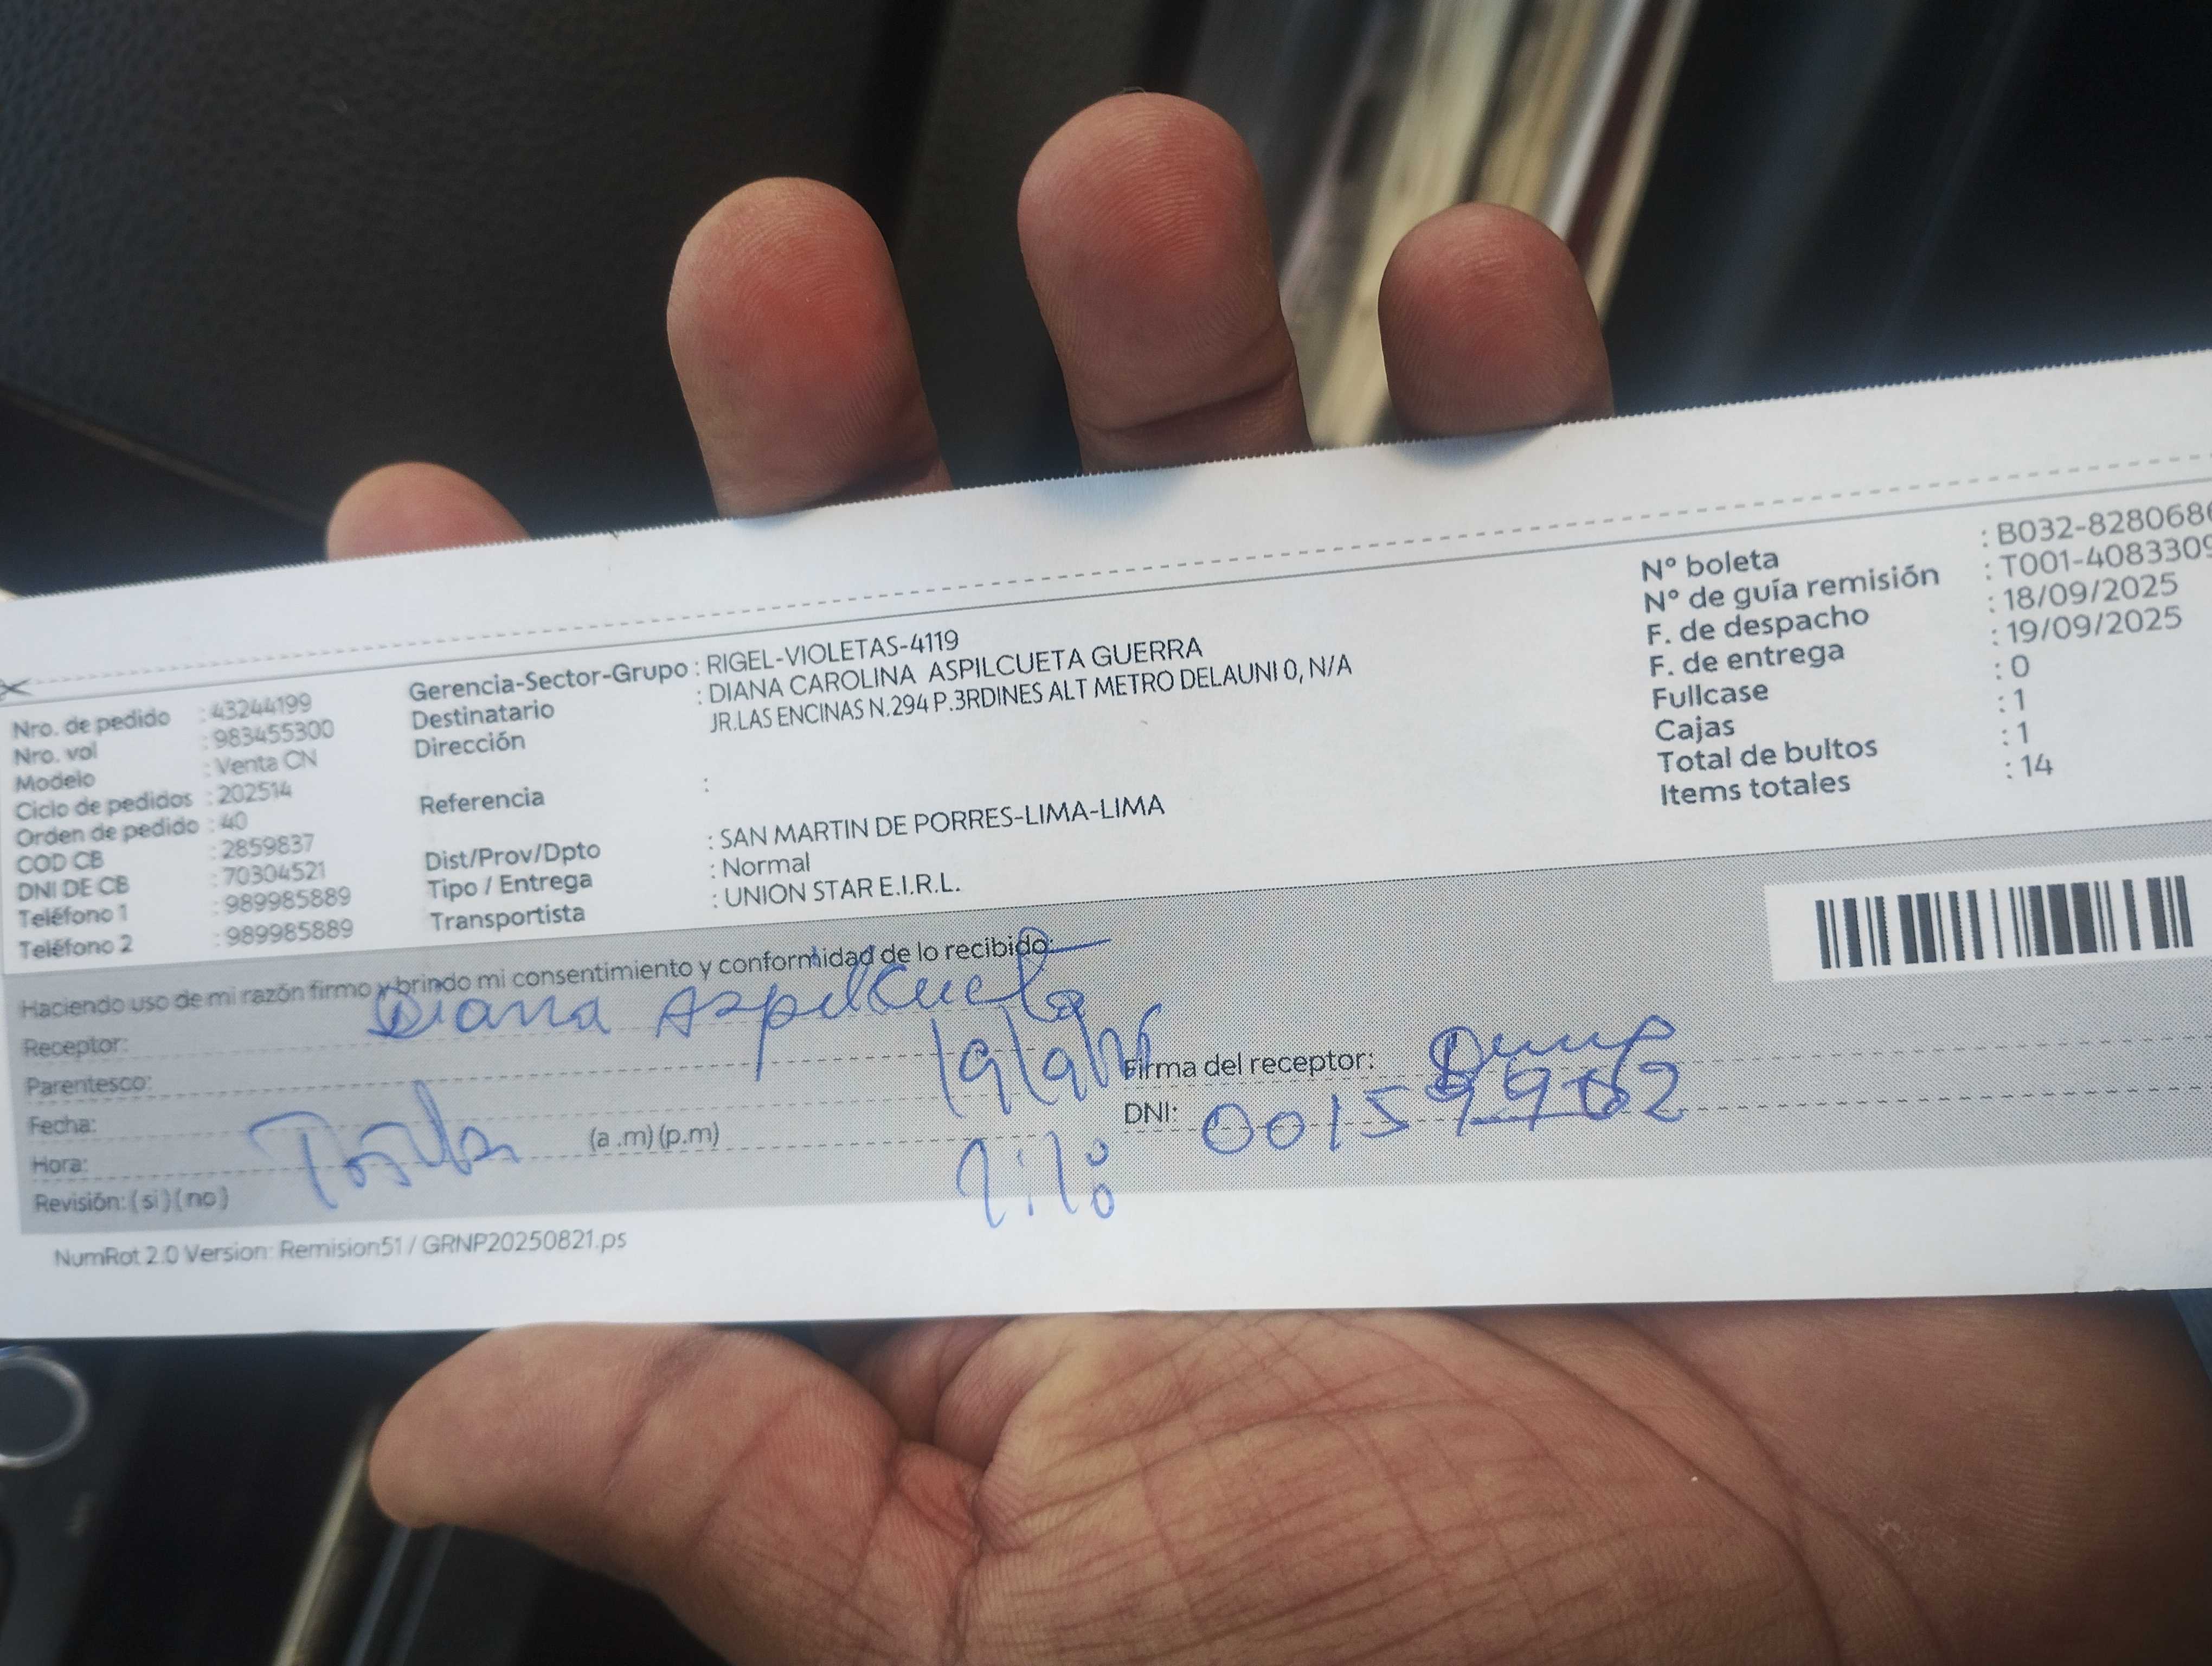 Nro. de pedido : 43244199
Nro. vol : 983455300
Modelo : Venta CN
Ciclo de pedidos : 202514
Orden de pedido : 40
COD CB : 2859837
DNI DE CB : 70304521
Teléfono 1 : 989985889
Teléfono 2 : 989985889
Gerencia-Sector-Grupo : RIGEL-VIOLETAS-4119
Destinatario : DIANA CAROLINA ASPILCUETA GUERRA
Dirección JR.LAS ENCINAS N.294 P.3RDINES ALT METRO DELAUNI 0, N/A
Referencia :
Dist/Prov/Dpto : SAN MARTIN DE PORRES-LIMA-LIMA
Tipo / Entrega : Normal
Transportista : UNION STAR E.I.R.L.
N° boleta : B032-828068
N° de guía remisión : T001-4083309
F. de despacho : 18/09/2025
F. de entrega : 19/09/2025
Fullcase : 0
Cajas : 1
Total de bultos : 1
Items totales : 14
Haciendo uso de mi razón firmo y brindo mi consentimiento y conformidad de lo recibido:
Receptor: Diana Aspilcueta
Parentesco:
Fecha:
Hora: (a .m) (p.m)
Revisión: ( si ) ( no )
Firma del receptor:
DNI:
NumRot 2.0 Version: Remision51 / GRNP20250821.ps